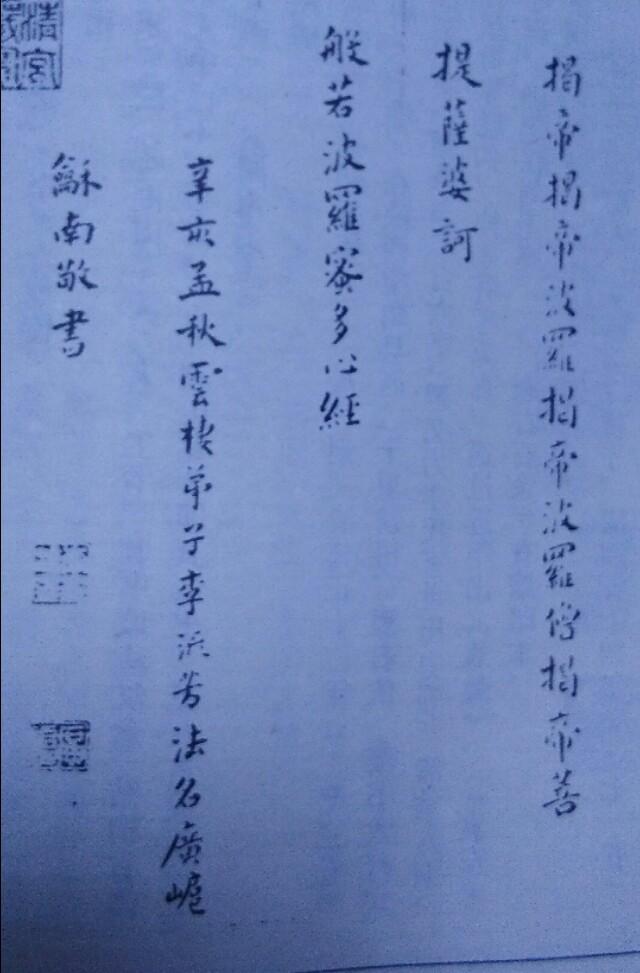 揭帝揭帝波羅揭帝波羅僧揭帝菩
提薩婆訶
般若波羅蜜多心經
辛亥孟秋雲棲弟子李流芳法名廣
龢南敬書
清宮